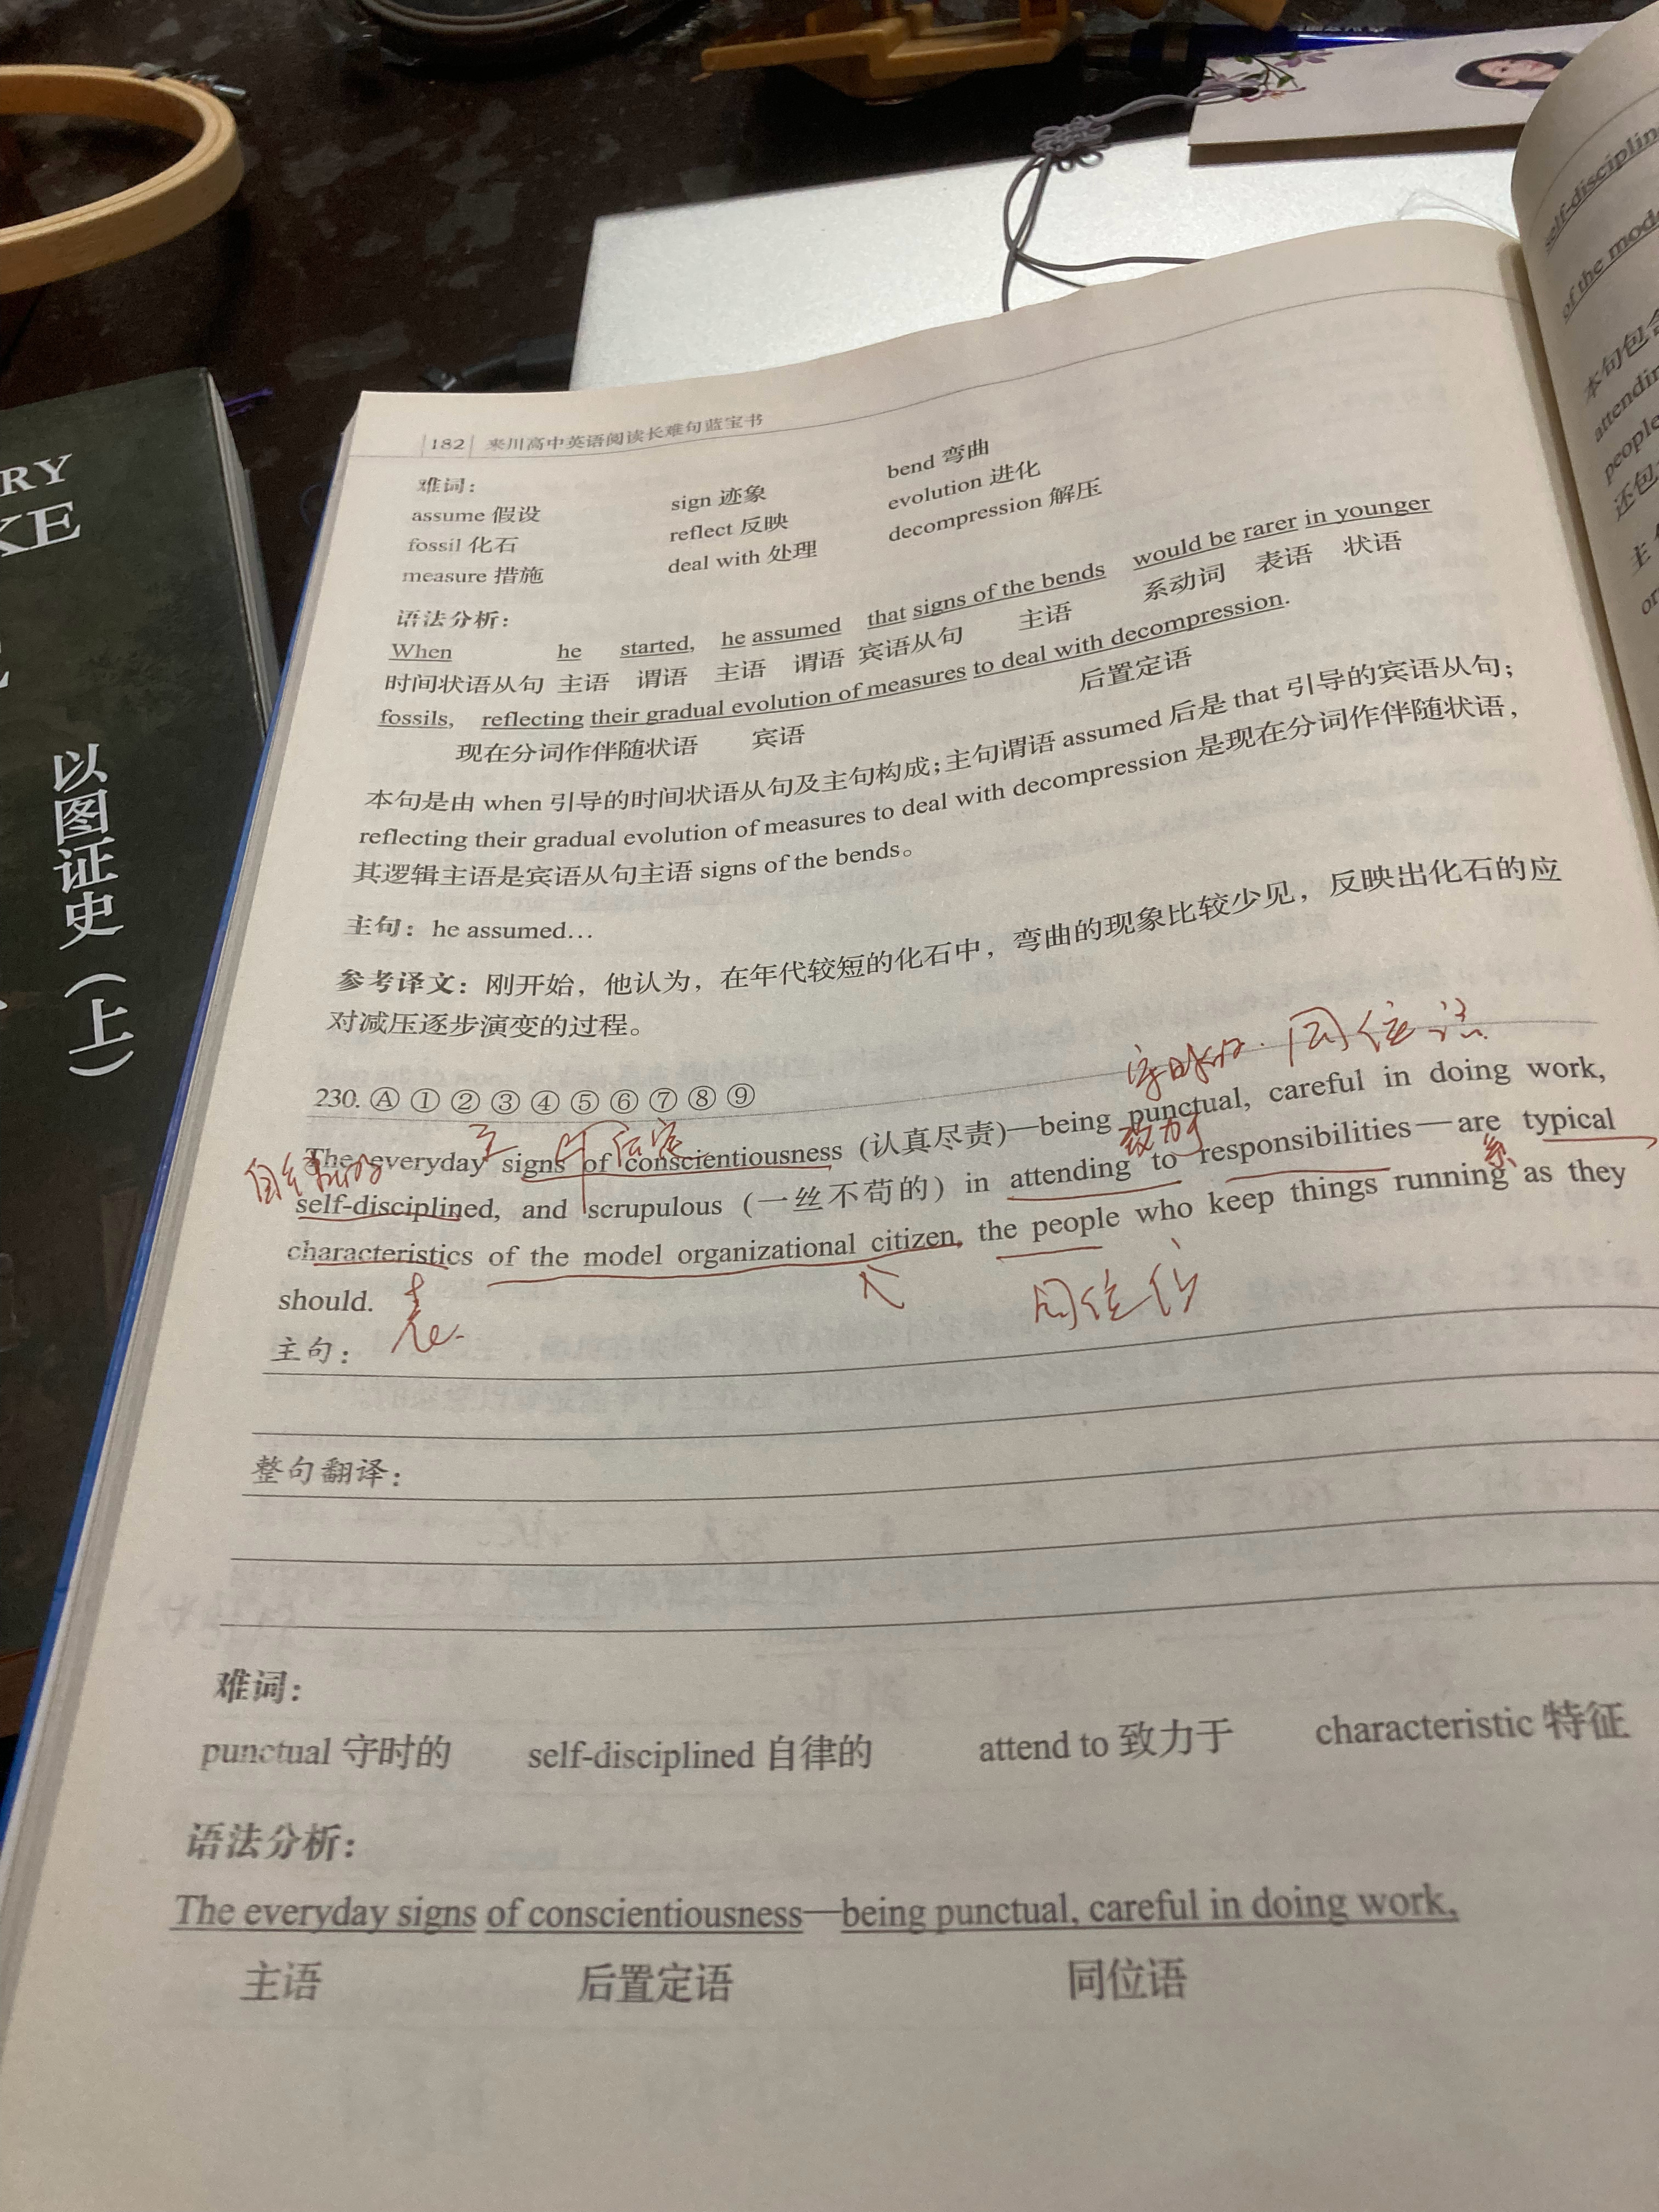 RY
KE
以图证史（上）
182 来川高中英语阅读长难句蓝宝书
难词：
assume 假设 sign 迹象 bend 弯曲
fossil 化石 reflect 反映 evolution 进化
measure 措施 deal with 处理 decompression 解压
语法分析：
When he started, he assumed that signs of the bends would be rarer in younger
时间状语从句 主语 谓语 主语 谓语 宾语从句 主语 系动词 表语 状语
fossils, reflecting their gradual evolution of measures to deal with decompression.
现在分词作伴随状语 宾语 后置定语
本句是由 when 引导的时间状语从句及主句构成；主句谓语 assumed 后是 that 引导的宾语从句；
reflecting their gradual evolution of measures to deal with decompression 是现在分词作伴随状语，
其逻辑主语是宾语从句主语 signs of the bends。
主句：he assumed…
参考译文：刚开始，他认为，在年代较短的化石中，弯曲的现象比较少见，反映出化石的应
对减压逐步演变的过程。
守时的. 同位语
230. Ⓐ ① ② ③ ④ ⑤ ⑥ ⑦ ⑧ ⑨
主 后定
The everyday signs of conscientiousness (认真尽责)—being punctual, careful in doing work,
自律的 致力于
self-disciplined, and scrupulous (一丝不苟的) in attending to responsibilities—are typical
系
characteristics of the model organizational citizen, the people who keep things running as they
should. 表 同位语
主句：
整句翻译：
难词：
punctual 守时的 self-disciplined 自律的 attend to 致力于 characteristic 特征
语法分析：
The everyday signs of conscientiousness—being punctual, careful in doing work,
主语 后置定语 同位语
self-disciplin
of the mod
本句包含
attendin
people
还包
主
or